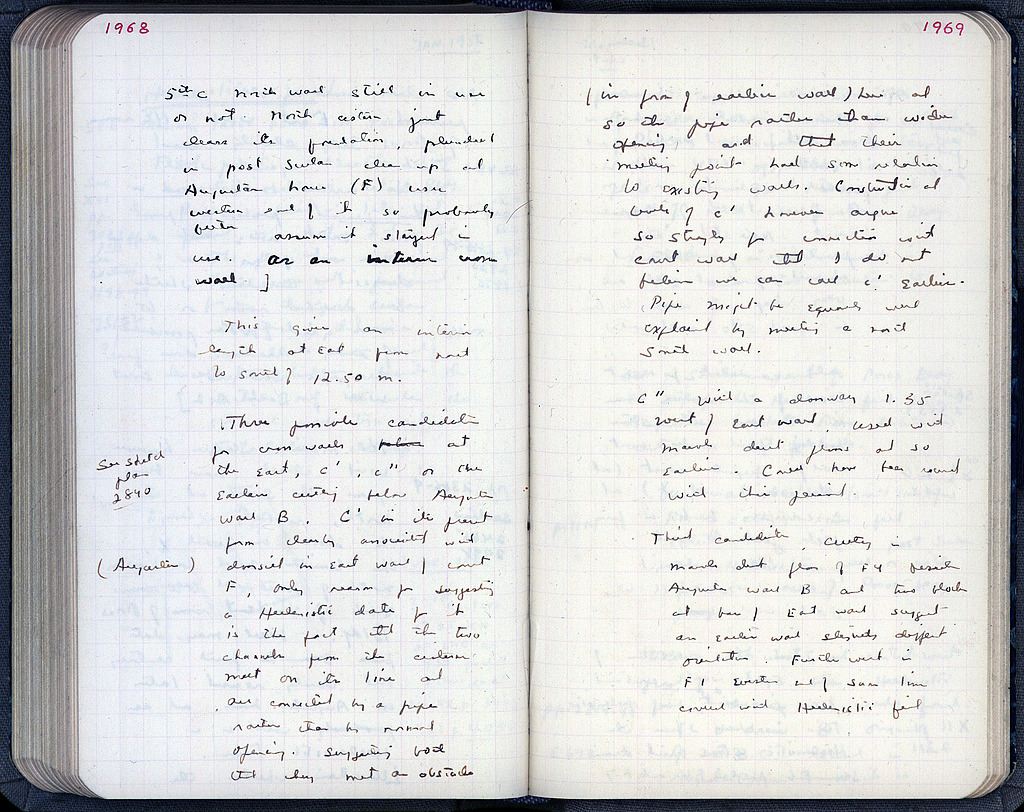 1968
5th C North wall still in use
or not. North cistern just
clears its foundation, plundered
in post Sullan clean up and
Augustan house (F) uses
western end of it so probably
better assume it stayed in
use. as an interior cross
wall ]
This gives an interior
length at East from north
to south of 12.50 m.
Three possible candidates
for cross walls below at
the East, C', C" or the
Earlier cutting below Augustan
wall B. C' in its present
form clearly associated with
(Augustan)
doorsill in East wall of court
F, only reason for suggesting
a Hellenistic date for it
is the fact that the two
channels from the cisterns
meet on its line and
are connected by a pipe
rather than by normal
opening. Suggesting both
that they met an obstacle
See sketch
plan
2840
1969
(in form of earlier wall) here and
so the pipe rather than wider
opening and that their
meeting point had some relation
to existing walls. Construction and
levels of C' however argue
so strongly for connection with
court wall that I do not
believe we can call C' Earlier.
Pipe might be equally well
explained by meeting a north
south wall.
C" with a doorway 1.35
west of East wall used with
marble dust floors and so
Earlier. Could have been reused
with this period.
Third candidate, cutting in
marble dust floor of F4 beside
Augustan wall B and two blocks
at base of East wall suggest
an Earlier wall slightly different
orientation. Further west in
F1 Eastern end of same line
covered with Hellenistic fill